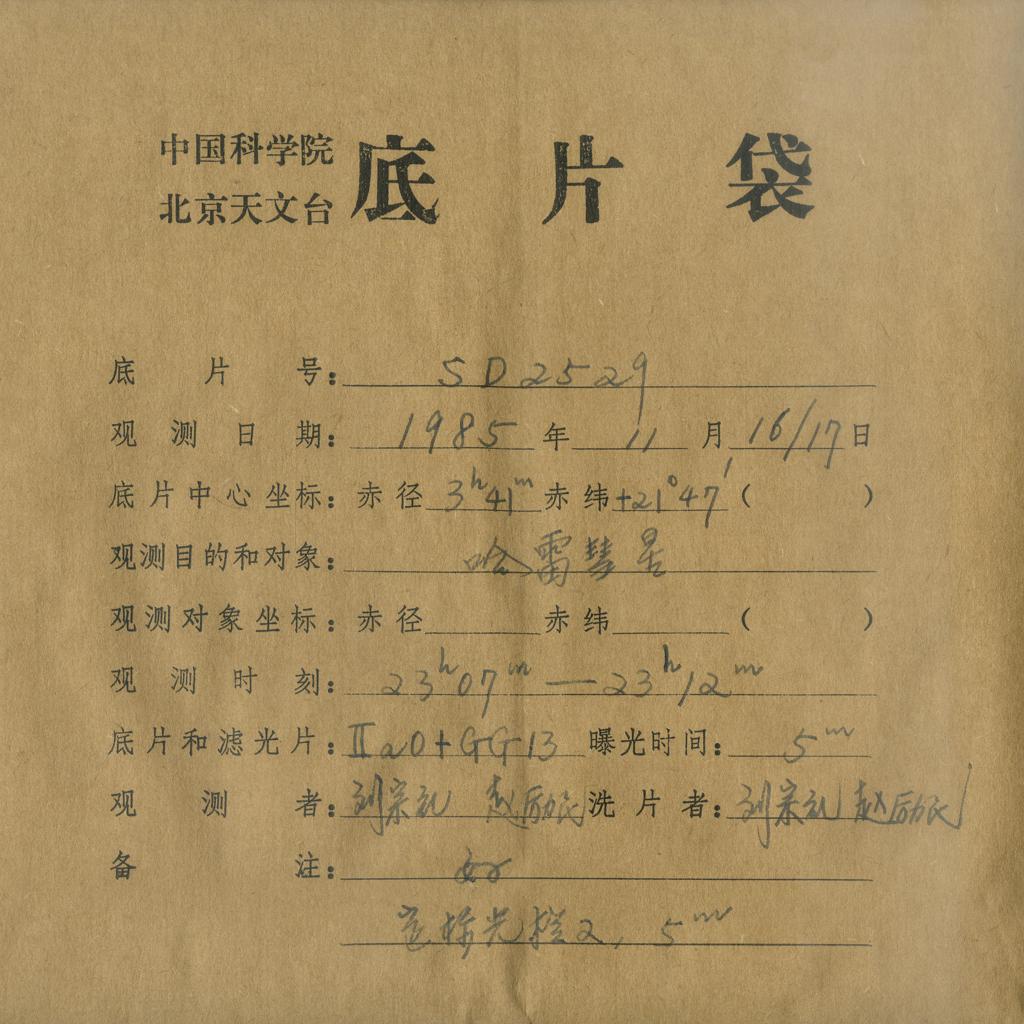 中国科学院
北京天文台 底片袋
底片号: SD2529
观测日期: 1985年11月16/17日
底片中心坐标: 赤径 3ʰ41ᵐ 赤纬 +21°47′ ( )
观测目的和对象: 哈雷彗星
观测对象坐标: 赤径 赤纬 ( )
观测时刻: 23ʰ07ᵐ — 23ʰ12ᵐ
底片和滤光片: ⅡaO+GG13 曝光时间: 5ᵐ
观测者: 刘宗礼 赵励民 洗片者: 刘宗礼 赵励民
备注: 好
定标光 2, 5ᵐ